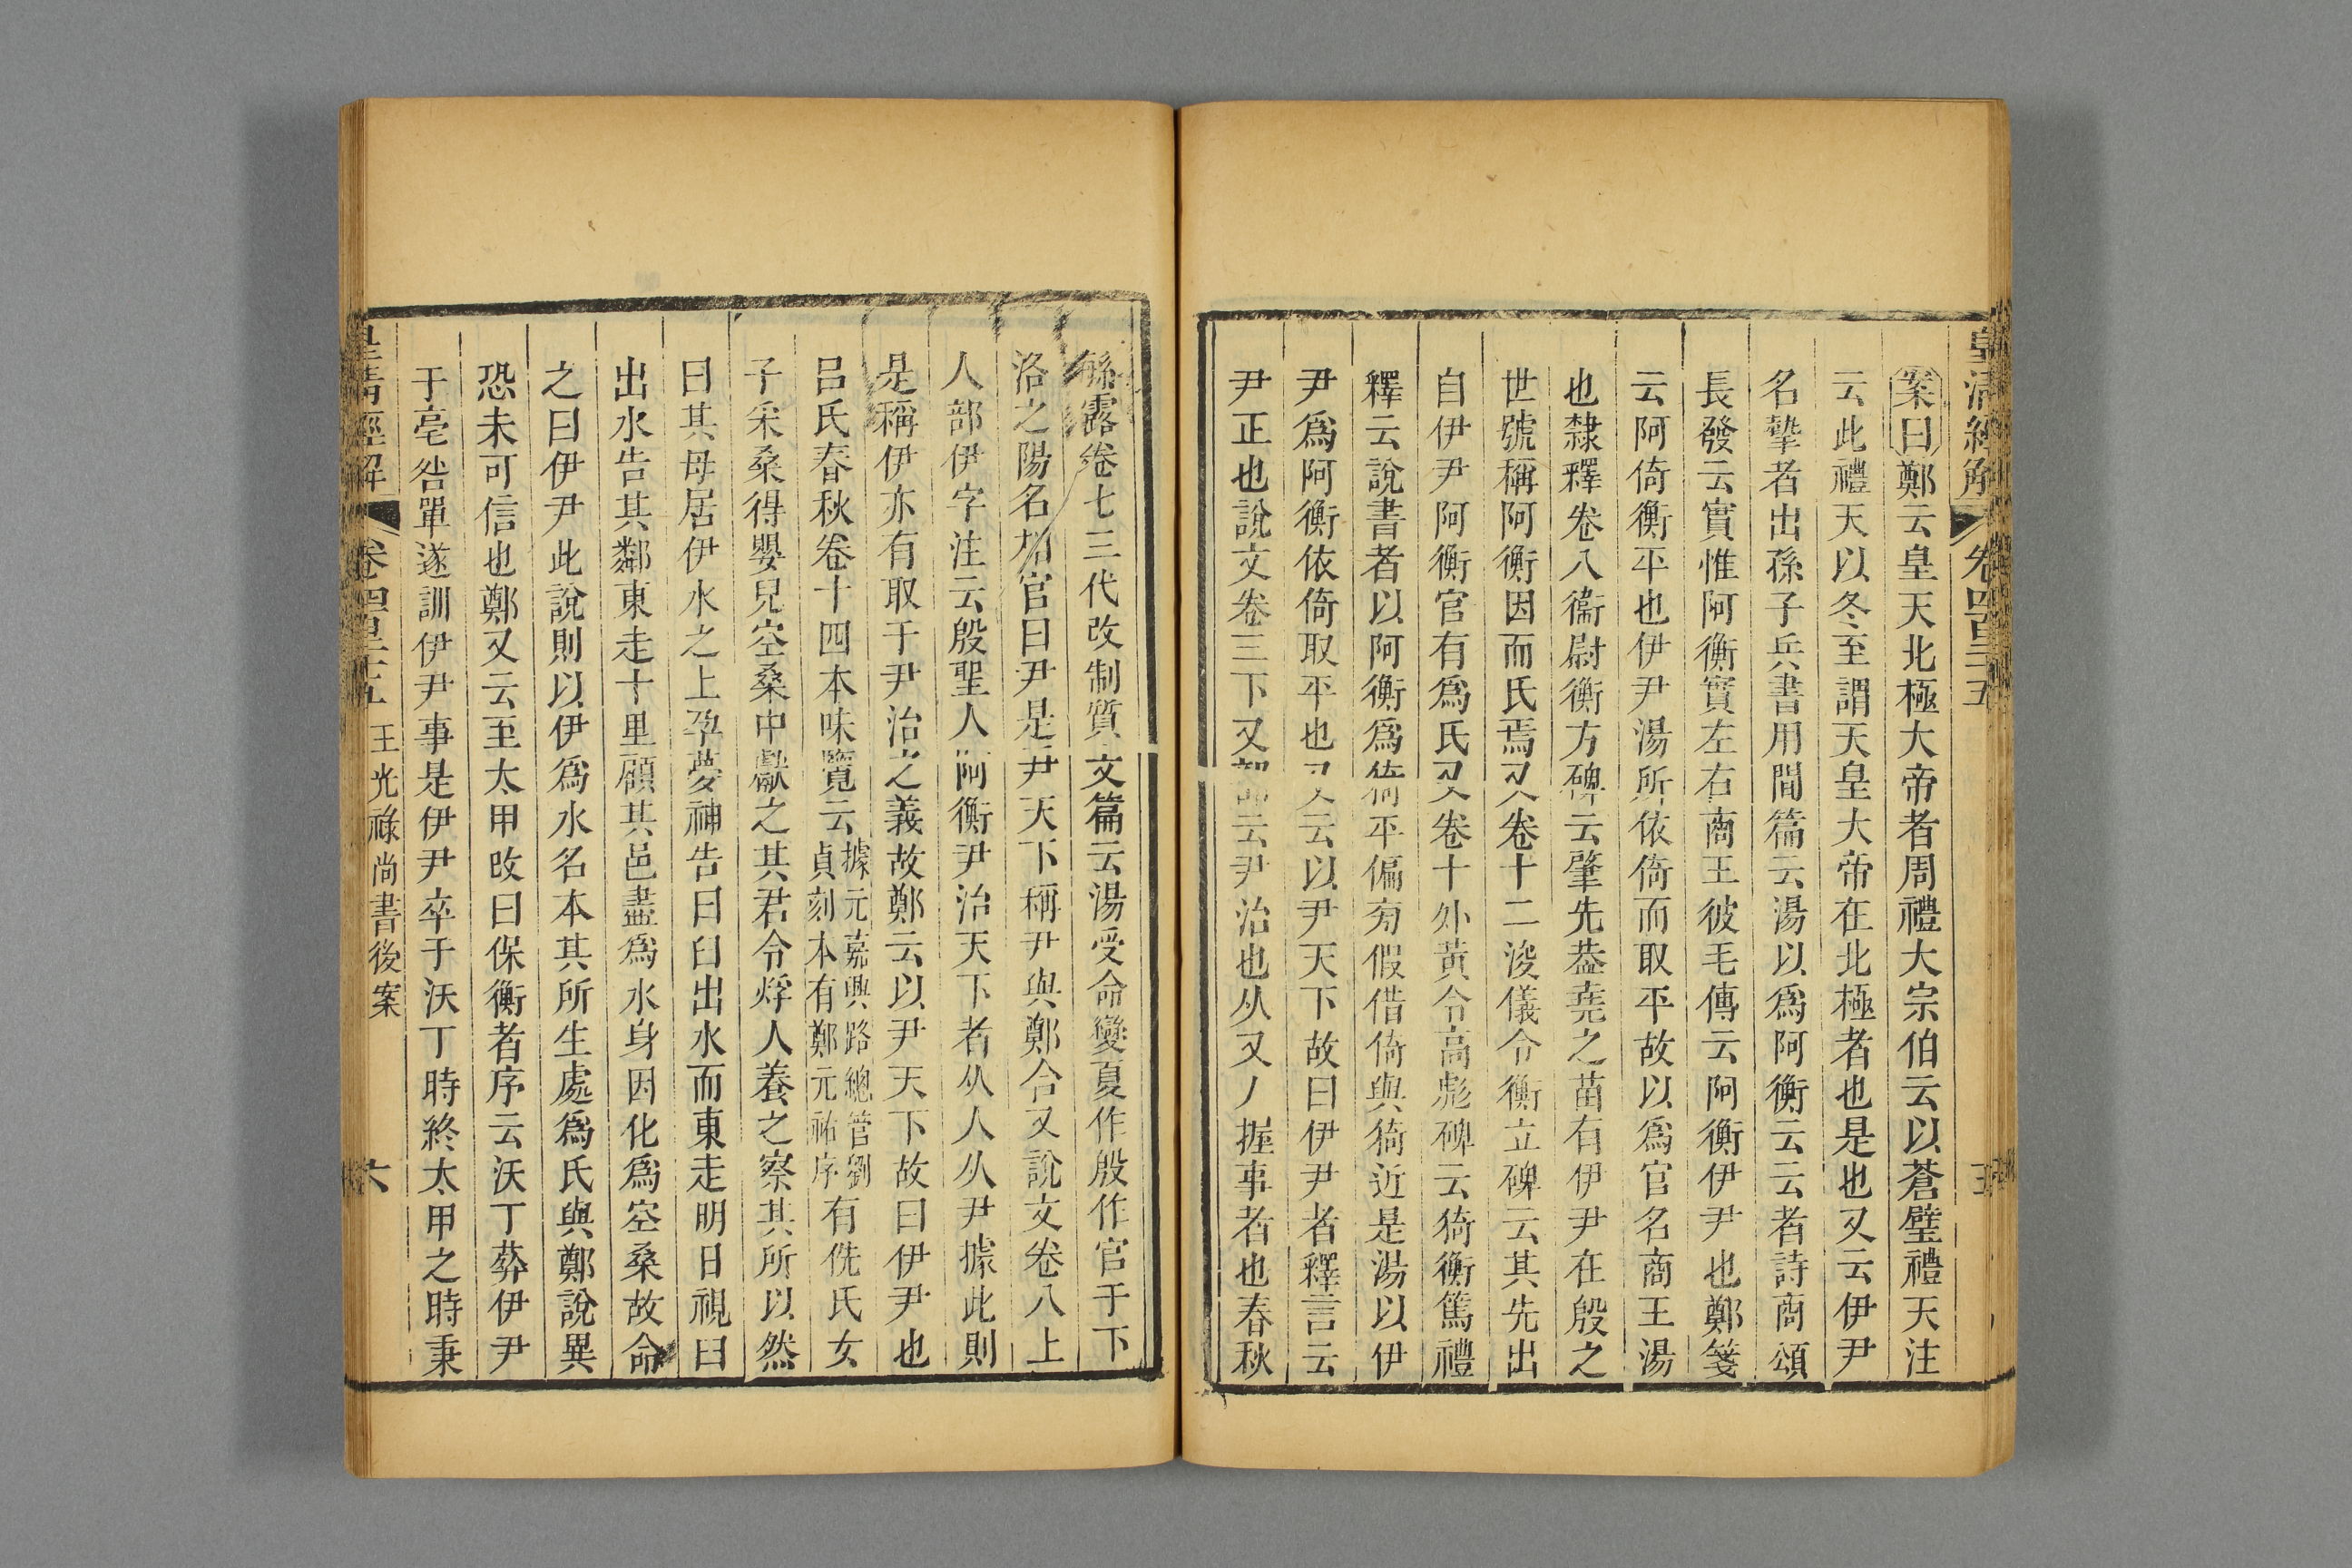 皇清經解 卷四百三十五 五
案曰鄭云皇天北極大帝者周禮大宗伯云以蒼璧禮天注
云此禮天以冬至謂天皇大帝在北極者也是也又云伊尹
名摯者出孫子兵書用間篇云湯以爲阿衡云云者詩商頌
長發云實惟阿衡實左右商王彼毛傳云阿衡伊尹也鄭箋
云阿倚衡平也伊尹湯所依倚而取平故以爲官名商王湯
也隸釋卷八衞尉衡方碑云肇先葢堯之苗有伊尹在殷之
世號稱阿衡因而氏焉又卷十二浚儀令衡立碑云其先出
自伊尹阿衡官有爲氏又卷十外黃令高彪碑云猗衡篤禮
釋云說書者以阿衡爲倚平偏旁假借倚與猗近是湯以伊
尹爲阿衡依倚取平也又云以尹天下故曰伊尹者釋言云
尹正也說文卷三下又部云尹治也从又丿握事者也春秋
緐露卷七三代改制質文篇云湯受命變夏作殷作官于下
洛之陽名相官曰尹是尹天下稱尹與鄭合又說文卷八上
人部伊字注云殷聖人阿衡尹治天下者从人从尹據此則
是稱伊亦有取于尹治之義故鄭云以尹天下故曰伊尹也
呂氏春秋卷十四本味覽云據元嘉興路總管劉貞刻本有鄭元祐序有侁氏女
子采桑得嬰兒空桑中獻之其君令烰人養之察其所以然
曰其母居伊水之上孕夢神告曰臼出水而東走明日視曰
出水告其鄰東走十里顧其邑盡爲水身因化爲空桑故命
之曰伊尹此說則以伊爲水名本其所生處爲氏與鄭說異
恐未可信也鄭又云至太甲改曰保衡者序云沃丁葬伊尹
于亳咎單遂訓伊尹事是伊尹卒于沃丁時終太甲之時秉
皇清經解 卷四百三十五 王光祿尚書後案 六